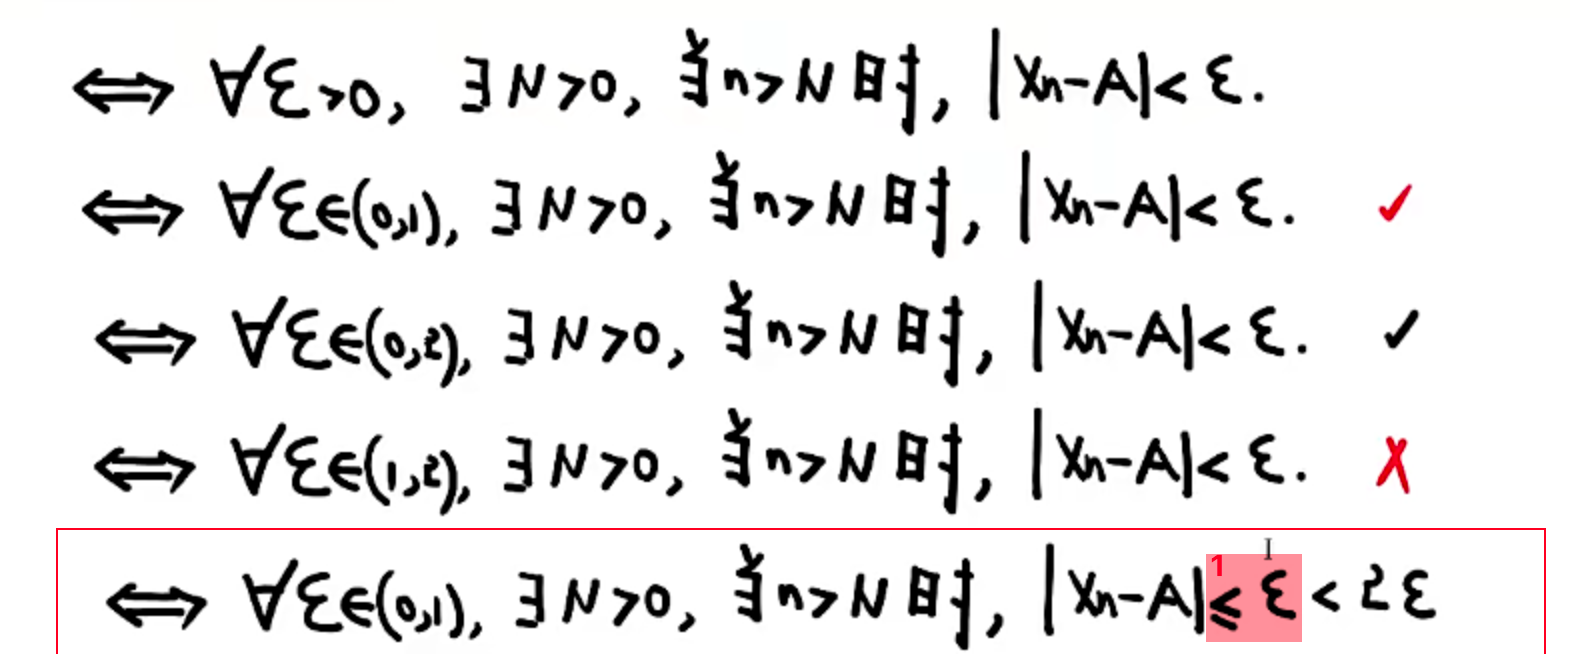 ⟺ ∀ε>0, ∃N>0, 当n>N时, |Xn-A|<ε.
⟺ ∀ε∈(0,1), ∃N>0, 当n>N时, |Xn-A|<ε. ✓
⟺ ∀ε∈(0,2), ∃N>0, 当n>N时, |Xn-A|<ε. ✓
⟺ ∀ε∈(1,2), ∃N>0, 当n>N时, |Xn-A|<ε. ✗
1
⟺ ∀ε∈(0,1), ∃N>0, 当n>N时, |Xn-A|≤ε<2ε